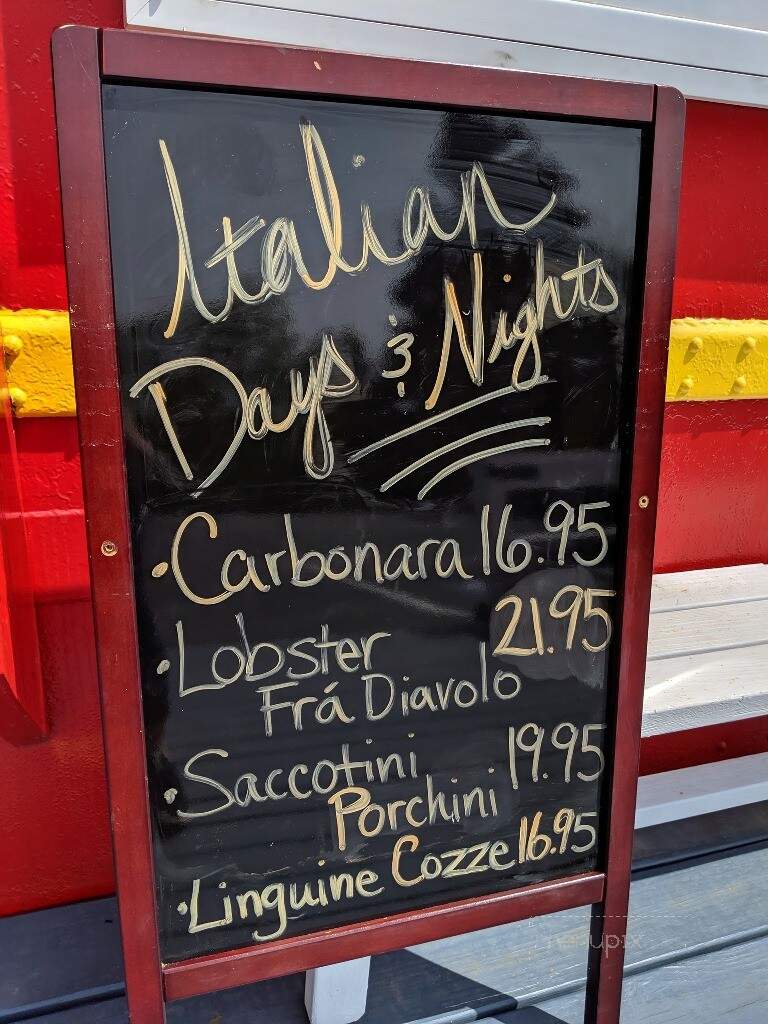 Italian
Days & Nights
• Carbonara 16.95
• Lobster 21.95
Frá Diavolo
• Saccotini 19.95
Porchini
• Linguine Cozze 16.95
menupix